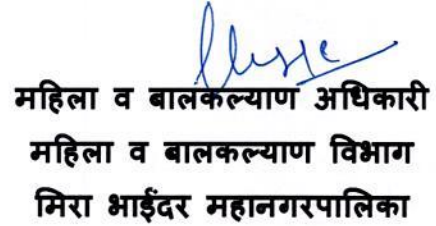 महिला व बालकल्याण अधिकारी
महिला व बालकल्याण विभाग
मिरा भाईंदर महानगरपालिका